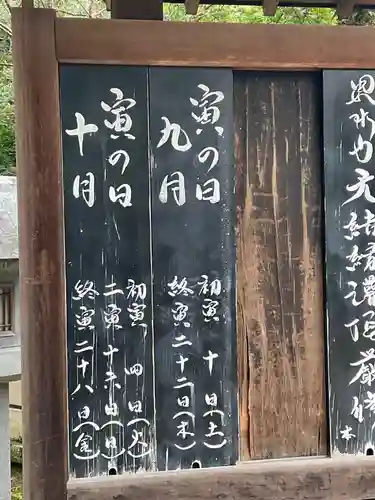 毘沙門天結縁灌頂厳修
寅の日
九月
初寅 十日(土)
終寅 二十二日(木)
寅の日
十月
初寅 四日(火)
二寅 十六日(日)
終寅 二十八日(金)